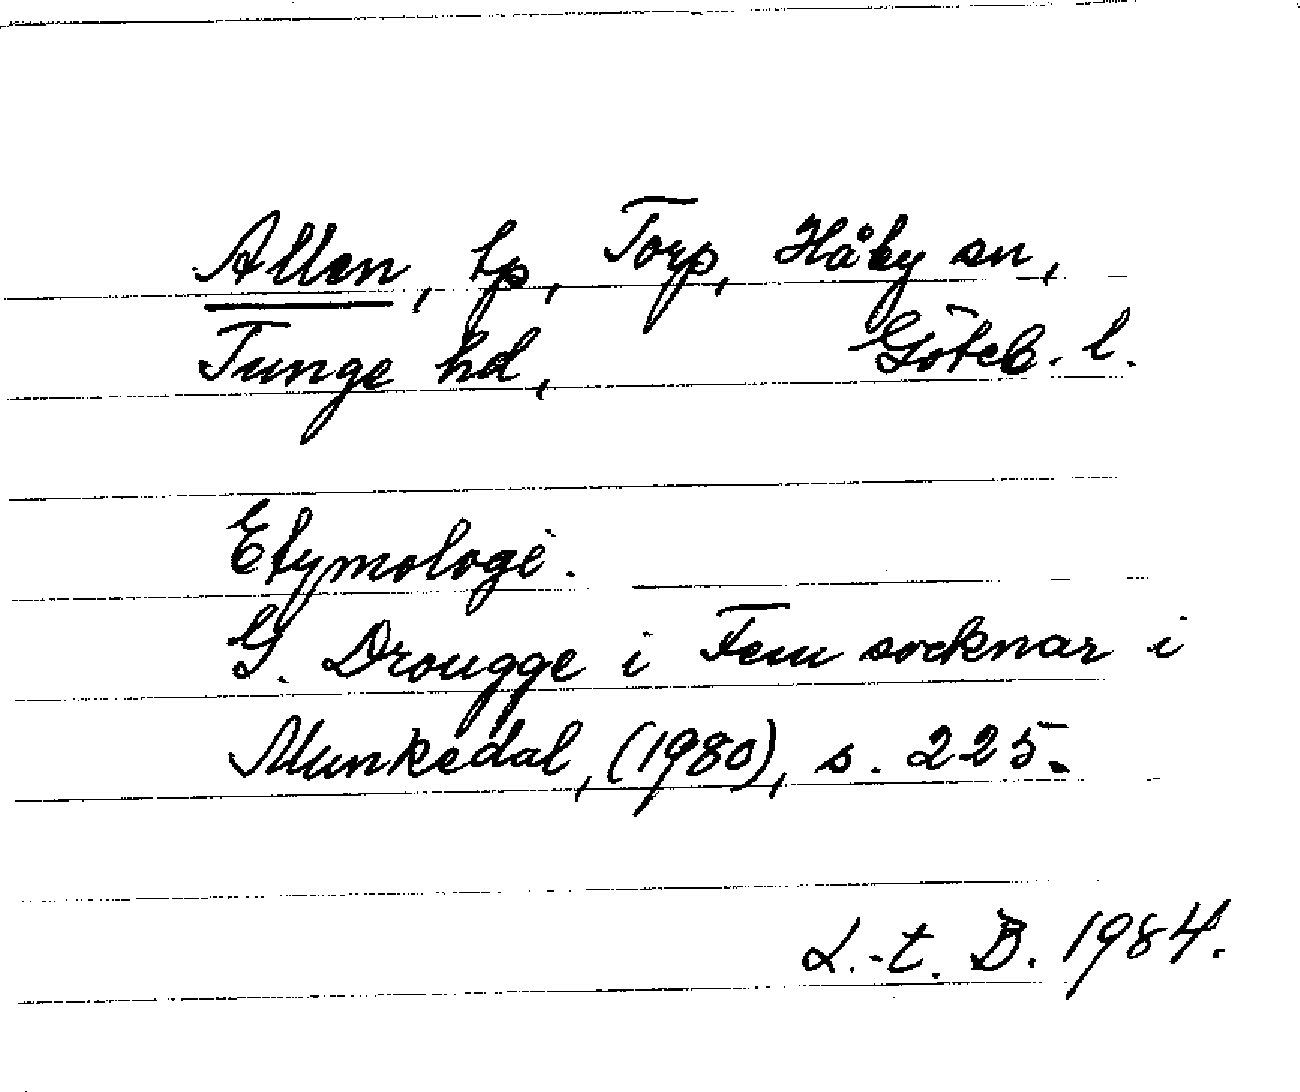 Allen, tp, Torp, Håby sn,
Tunge hd, Göteb. l.
Etymologi.
G. Drougge i Fem socknar i
Munkedal, (1980), s. 225.
L.-t. B. 1984.